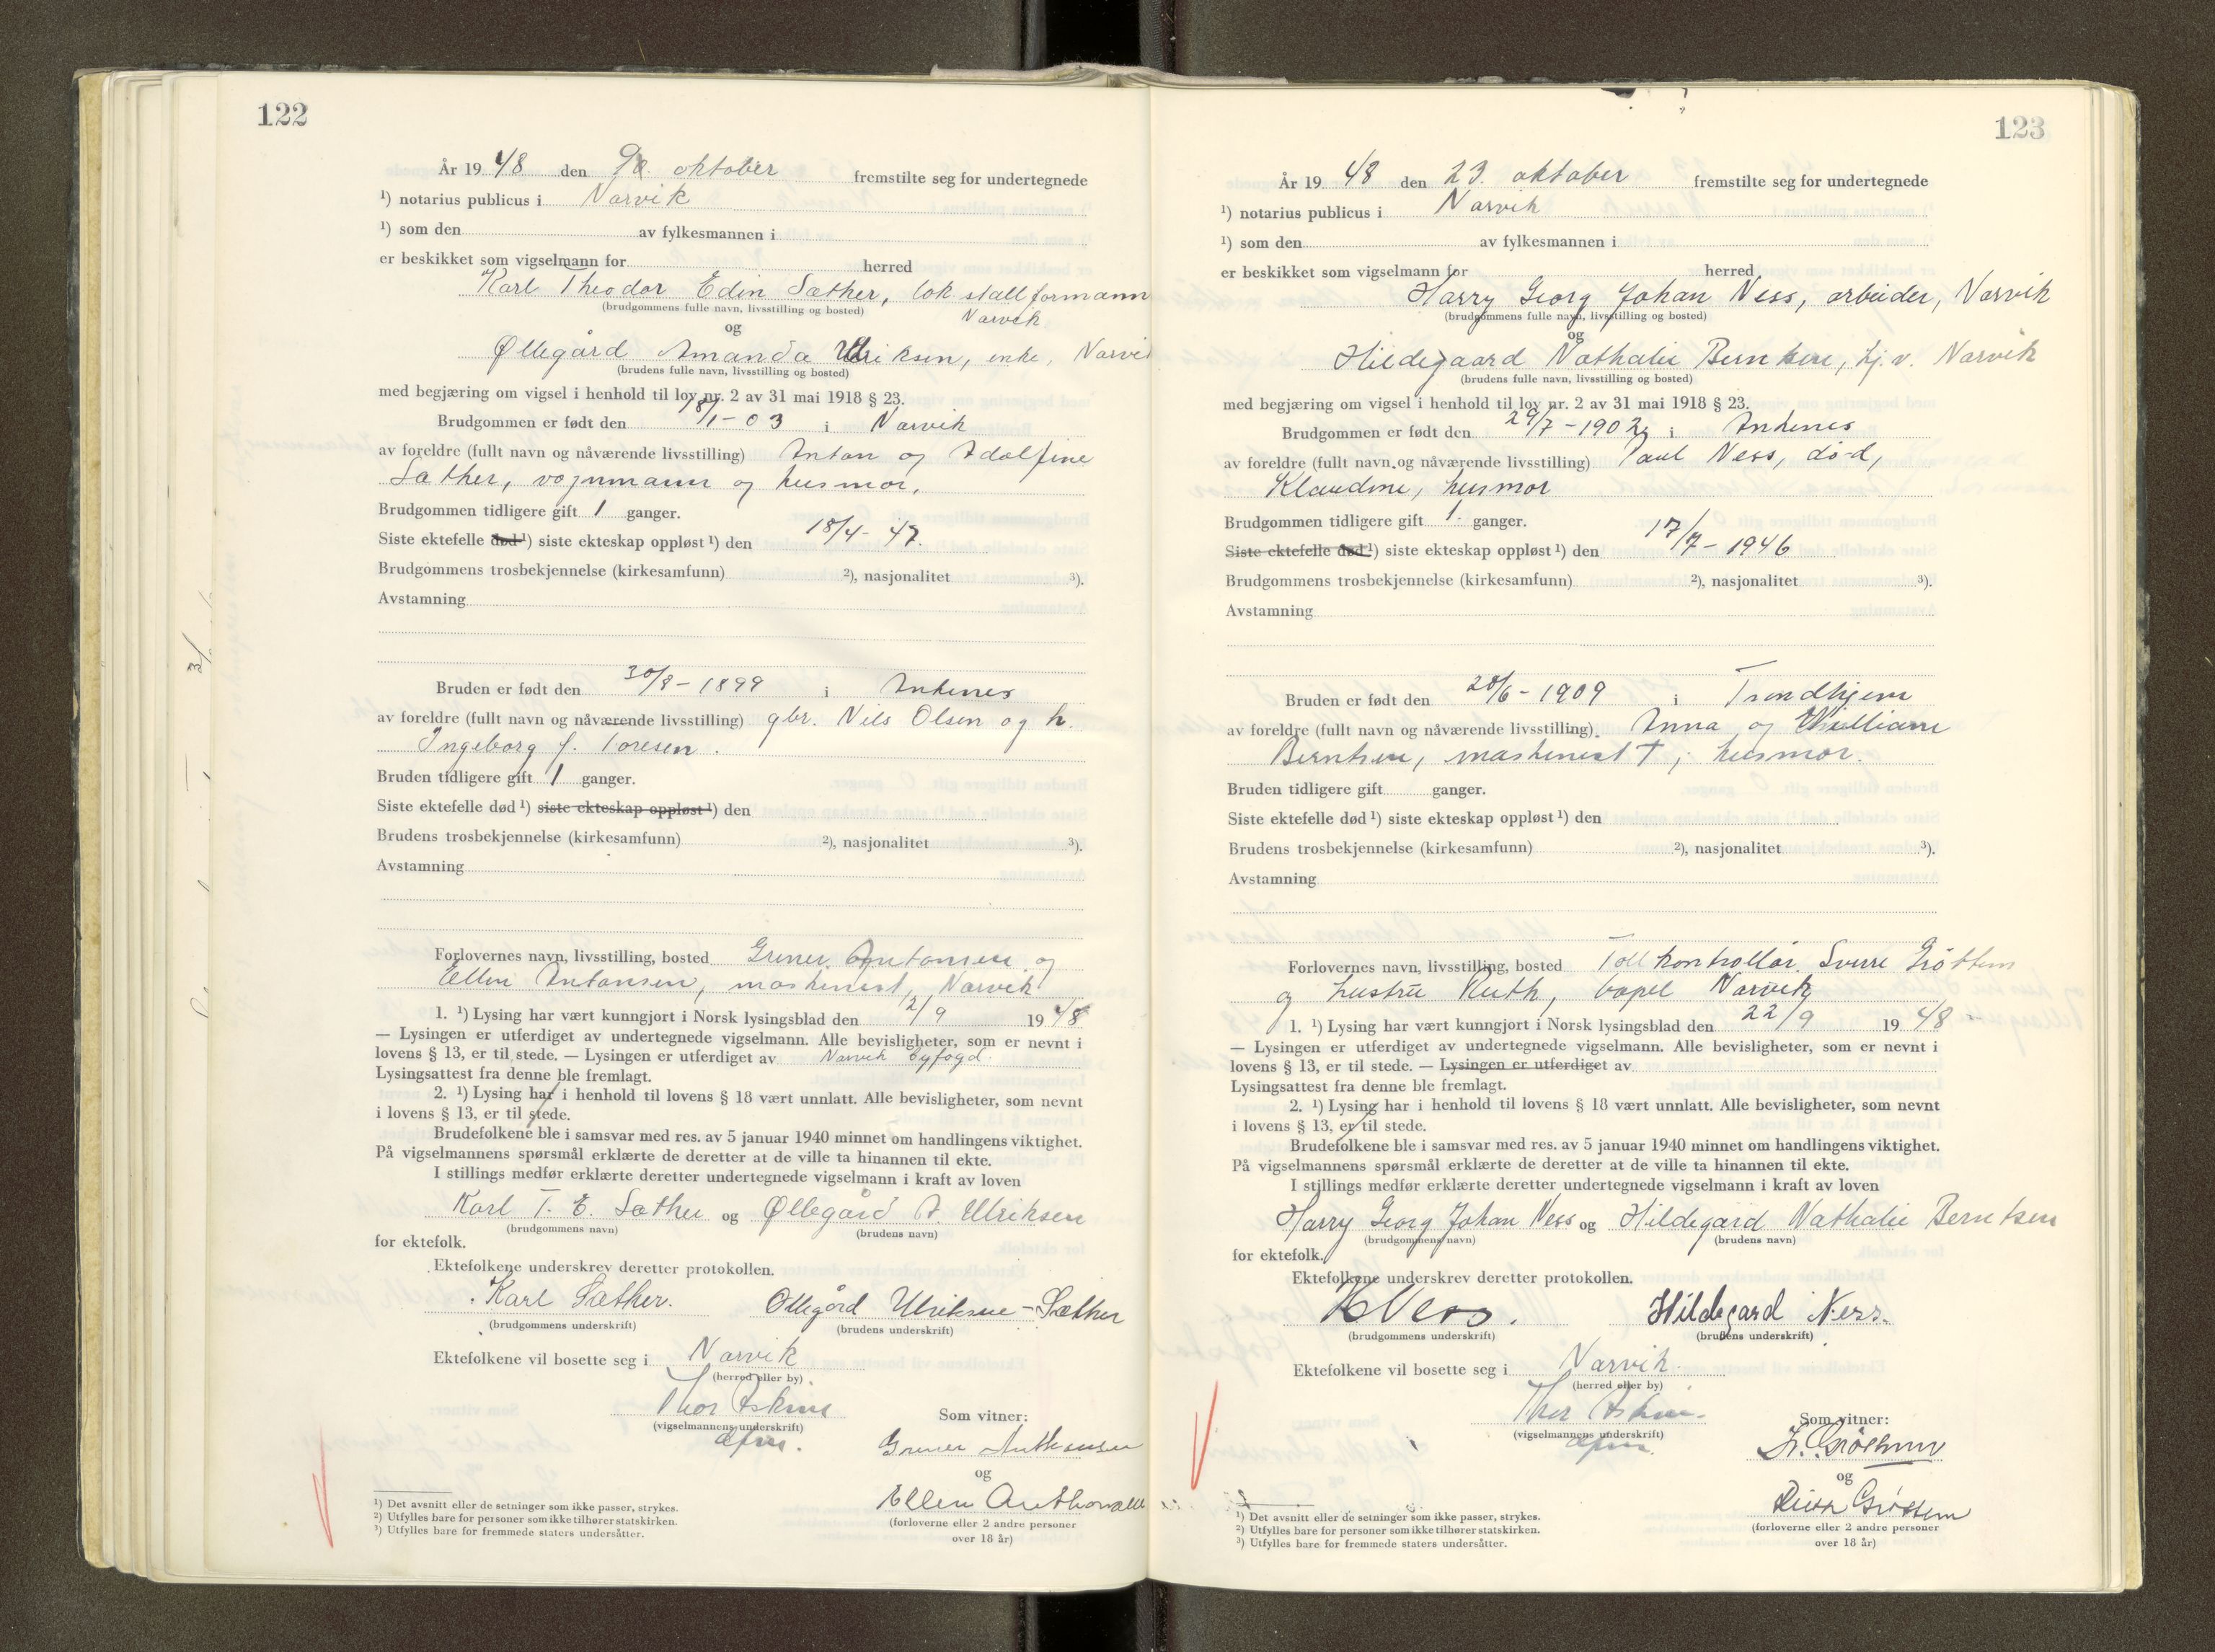 122
År 19 48 den 9. oktober fremstilte seg for undertegnede
¹) notarius publicus i Narvik
¹) som den av fylkesmannen i
er beskikket som vigselmann for herred
Karl Theodor Edin Sæther, lok stallformann
(brudgommens fulle navn, livsstilling og bosted)
Narvik
og
Øllegård Amanda Ulriksen, enke, Narvik
(brudens fulle navn, livsstilling og bosted)
med begjæring om vigsel i henhold til lov nr. 2 av 31 mai 1918 § 23.
Brudgommen er født den 18/1-03 i Narvik
av foreldre (fullt navn og nåværende livsstilling) Anton og Adolfine
Sæther, vognmann og husmor.
Brudgommen tidligere gift 1 ganger.
Siste ektefelle død ¹) siste ekteskap oppløst ¹) den 18/4-47.
Brudgommens trosbekjennelse (kirkesamfunn) ²), nasjonalitet ³).
Avstamning
Bruden er født den 30/8-1899 i Ankenes
av foreldre (fullt navn og nåværende livsstilling) gbr. Nils Olsen og h.
Ingeborg f. Toresen.
Bruden tidligere gift 1 ganger.
Siste ektefelle død ¹) siste ekteskap oppløst ¹) den
Brudens trosbekjennelse (kirkesamfunn) ²), nasjonalitet ³).
Avstamning
Forlovernes navn, livsstilling, bosted Gruner Antonsen og
Ellen Antonsen, maskinist, Narvik
1. ¹) Lysing har vært kunngjort i Norsk lysingsblad den 2/9 19 48
— Lysingen er utferdiget av undertegnede vigselmann. Alle bevisligheter, som er nevnt i
lovens § 13, er til stede. — Lysingen er utferdiget av Narvik byfogd.
Lysingsattest fra denne ble fremlagt.
2. ¹) Lysing har i henhold til lovens § 18 vært unnlatt. Alle bevisligheter, som nevnt
i lovens § 13, er til stede.
Brudefolkene ble i samsvar med res. av 5 januar 1940 minnet om handlingens viktighet.
På vigselmannens spørsmål erklærte de deretter at de ville ta hinannen til ekte.
I stillings medfør erklærte deretter undertegnede vigselmann i kraft av loven
Karl T. E. Sæther og Øllegård A. Ulriksen
(brudgommens navn) (brudens navn)
for ektefolk.
Ektefolkene underskrev deretter protokollen.
Karl Sæther. Øllegård Ulriksen-Sæther
(brudgommens underskrift) (brudens underskrift)
Ektefolkene vil bosette seg i Narvik
(herred eller by)
Thor
(vigselmannens underskrift)
Som vitner:
og
Ellen
(forloverne eller 2 andre personer
over 18 år)
¹) Det avsnitt eller de setninger som ikke passer, strykes.
²) Utfylles bare for personer som ikke tilhører statskirken.
³) Utfylles bare for fremmede staters undersåtter.
123
År 19 48 den 23. oktober fremstilte seg for undertegnede
¹) notarius publicus i Narvik
¹) som den av fylkesmannen i
er beskikket som vigselmann for herred
Harry Georg Johan Ness, arbeider, Narvik
(brudgommens fulle navn, livsstilling og bosted)
og
Hildegaard Nathalie Berntsen, hj.v. Narvik
(brudens fulle navn, livsstilling og bosted)
med begjæring om vigsel i henhold til lov nr. 2 av 31 mai 1918 § 23.
Brudgommen er født den 29/7-190 i Ankenes
av foreldre (fullt navn og nåværende livsstilling) Paul Ness, død,
Klaudine, husmor
Brudgommen tidligere gift 1. ganger.
Siste ektefelle død ¹) siste ekteskap oppløst ¹) den 17/7-1946
Brudgommens trosbekjennelse (kirkesamfunn) ²), nasjonalitet ³).
Avstamning
Bruden er født den 28/6-1909 i Trondhjem
av foreldre (fullt navn og nåværende livsstilling) Anna og William
Berntsen, maskinist †, husmor.
Bruden tidligere gift ganger.
Siste ektefelle død ¹) siste ekteskap oppløst ¹) den
Brudens trosbekjennelse (kirkesamfunn) ²), nasjonalitet ³).
Avstamning
Forlovernes navn, livsstilling, bosted Tollkontrollør Sverre Grøttem
og hustru Ruth, Narvik
1. ¹) Lysing har vært kunngjort i Norsk lysingsblad den 22/9 19 48
— Lysingen er utferdiget av undertegnede vigselmann. Alle bevisligheter, som er nevnt i
lovens § 13, er til stede. — Lysingen er utferdiget av
Lysingsattest fra denne ble fremlagt.
2. ¹) Lysing har i henhold til lovens § 18 vært unnlatt. Alle bevisligheter, som nevnt
i lovens § 13, er til stede.
Brudefolkene ble i samsvar med res. av 5 januar 1940 minnet om handlingens viktighet.
På vigselmannens spørsmål erklærte de deretter at de ville ta hinannen til ekte.
I stillings medfør erklærte deretter undertegnede vigselmann i kraft av loven
Harry Georg Johan Ness og Hildegård Nathalie Berntsen
(brudgommens navn) (brudens navn)
for ektefolk.
Ektefolkene underskrev deretter protokollen.
H Ness. Hildegard Ness.
(brudgommens underskrift) (brudens underskrift)
Ektefolkene vil bosette seg i Narvik.
(herred eller by)
Thor
(vigselmannens underskrift)
Som vitner:
og
Ruth Grøttem
(forloverne eller 2 andre personer
over 18 år)
¹) Det avsnitt eller de setninger som ikke passer, strykes.
²) Utfylles bare for personer som ikke tilhører statskirken.
³) Utfylles bare for fremmede staters undersåtter.